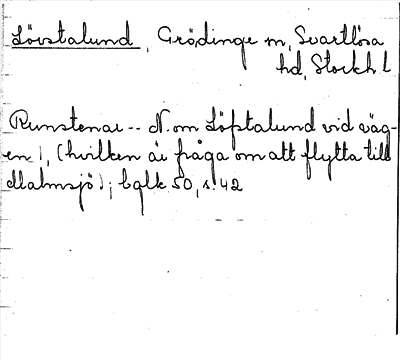 Lövstalund, Grödinge sn, Svartlösa
hd, Stockh. l
Runstenar -- N. om Löfstalund vid väg-
en 1, (hvilken är fråga om att flytta till
Malmsjö); bglk 50, s. 42